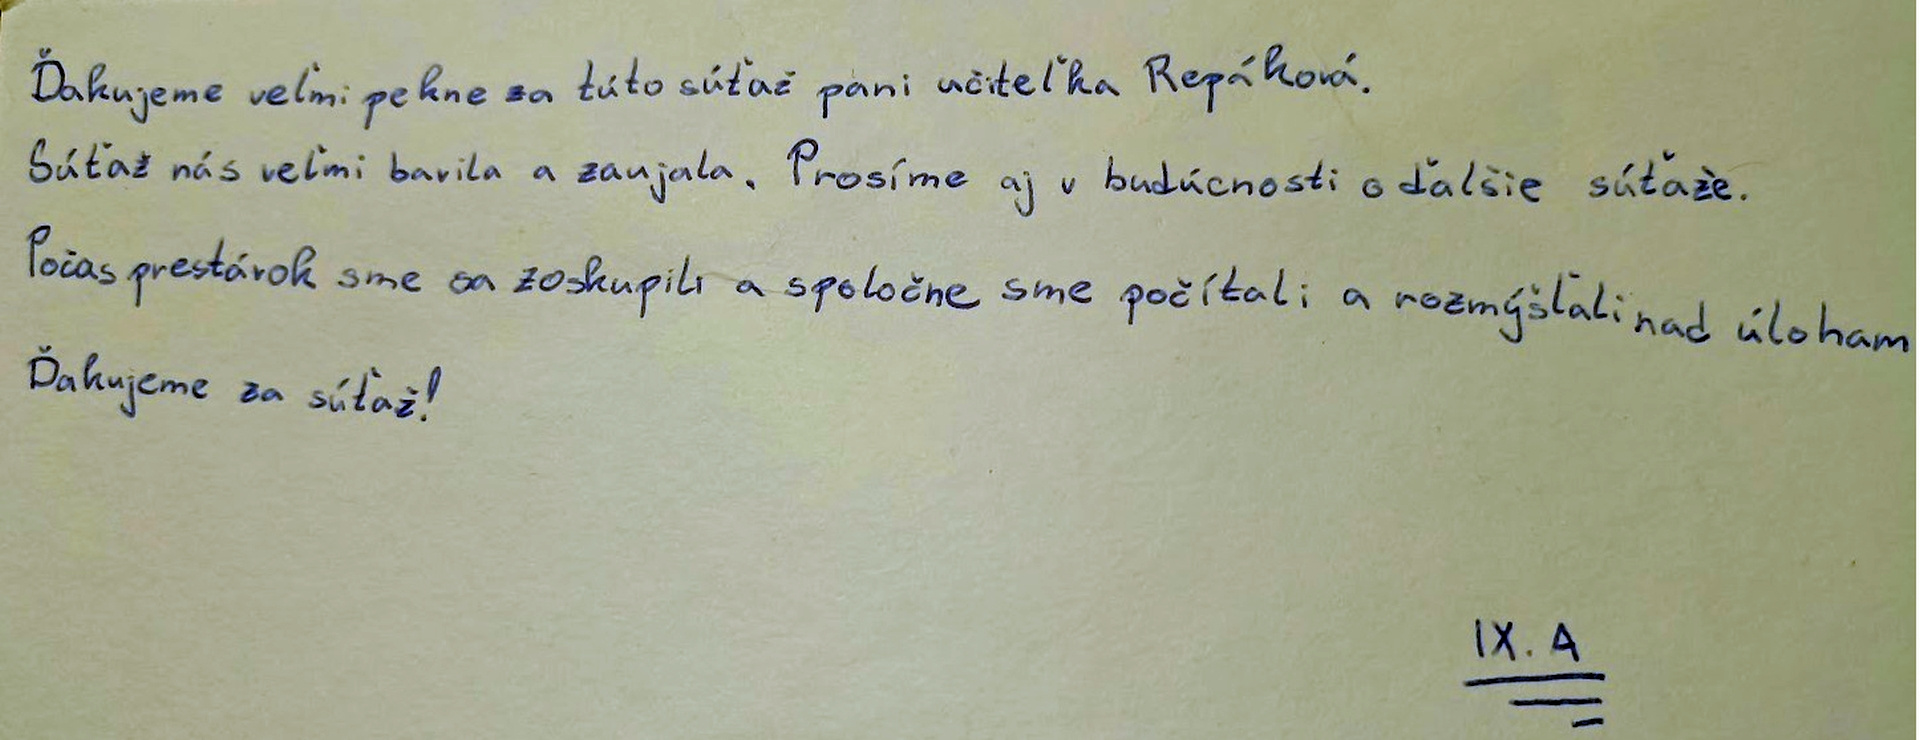 Ďakujeme veľmi pekne za túto súťaž pani učiteľka Repáková.
Súťaž nás veľmi bavila a zaujala. Prosíme aj v budúcnosti o ďalšie súťaže.
Počas prestávok sme sa zoskupili a spoločne sme počítali a rozmýšľali nad úloham
Ďakujeme za súťaž!
IX. A